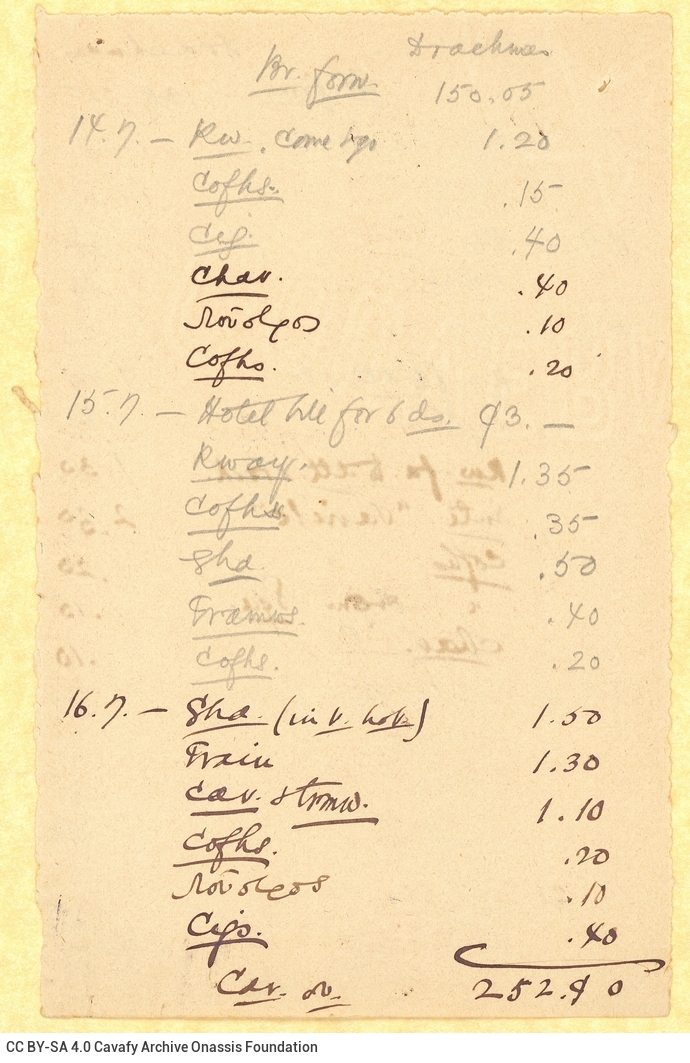 Drachmas
Br. forw. 150.05
14.7. — Rw. come & go 1.20
Cofhs. .15
Cig. .40
Char. .40
λοῦστρος .10
Cofhs. .20
15.7. — Hotel bill for 6 ds. 93. —
Rway. 1.35
Cofhs. .35
Sha. .50
Tramws. .40
Cofhs. .20
16.7. — Sha. (in v. hot.) 1.50
Train 1.30
Car. & trmw. 1.10
Cofhs. .20
λοῦστρος .10
Cigs. .40
Car. ov. 252.90
CC BY-SA 4.0 Cavafy Archive Onassis Foundation